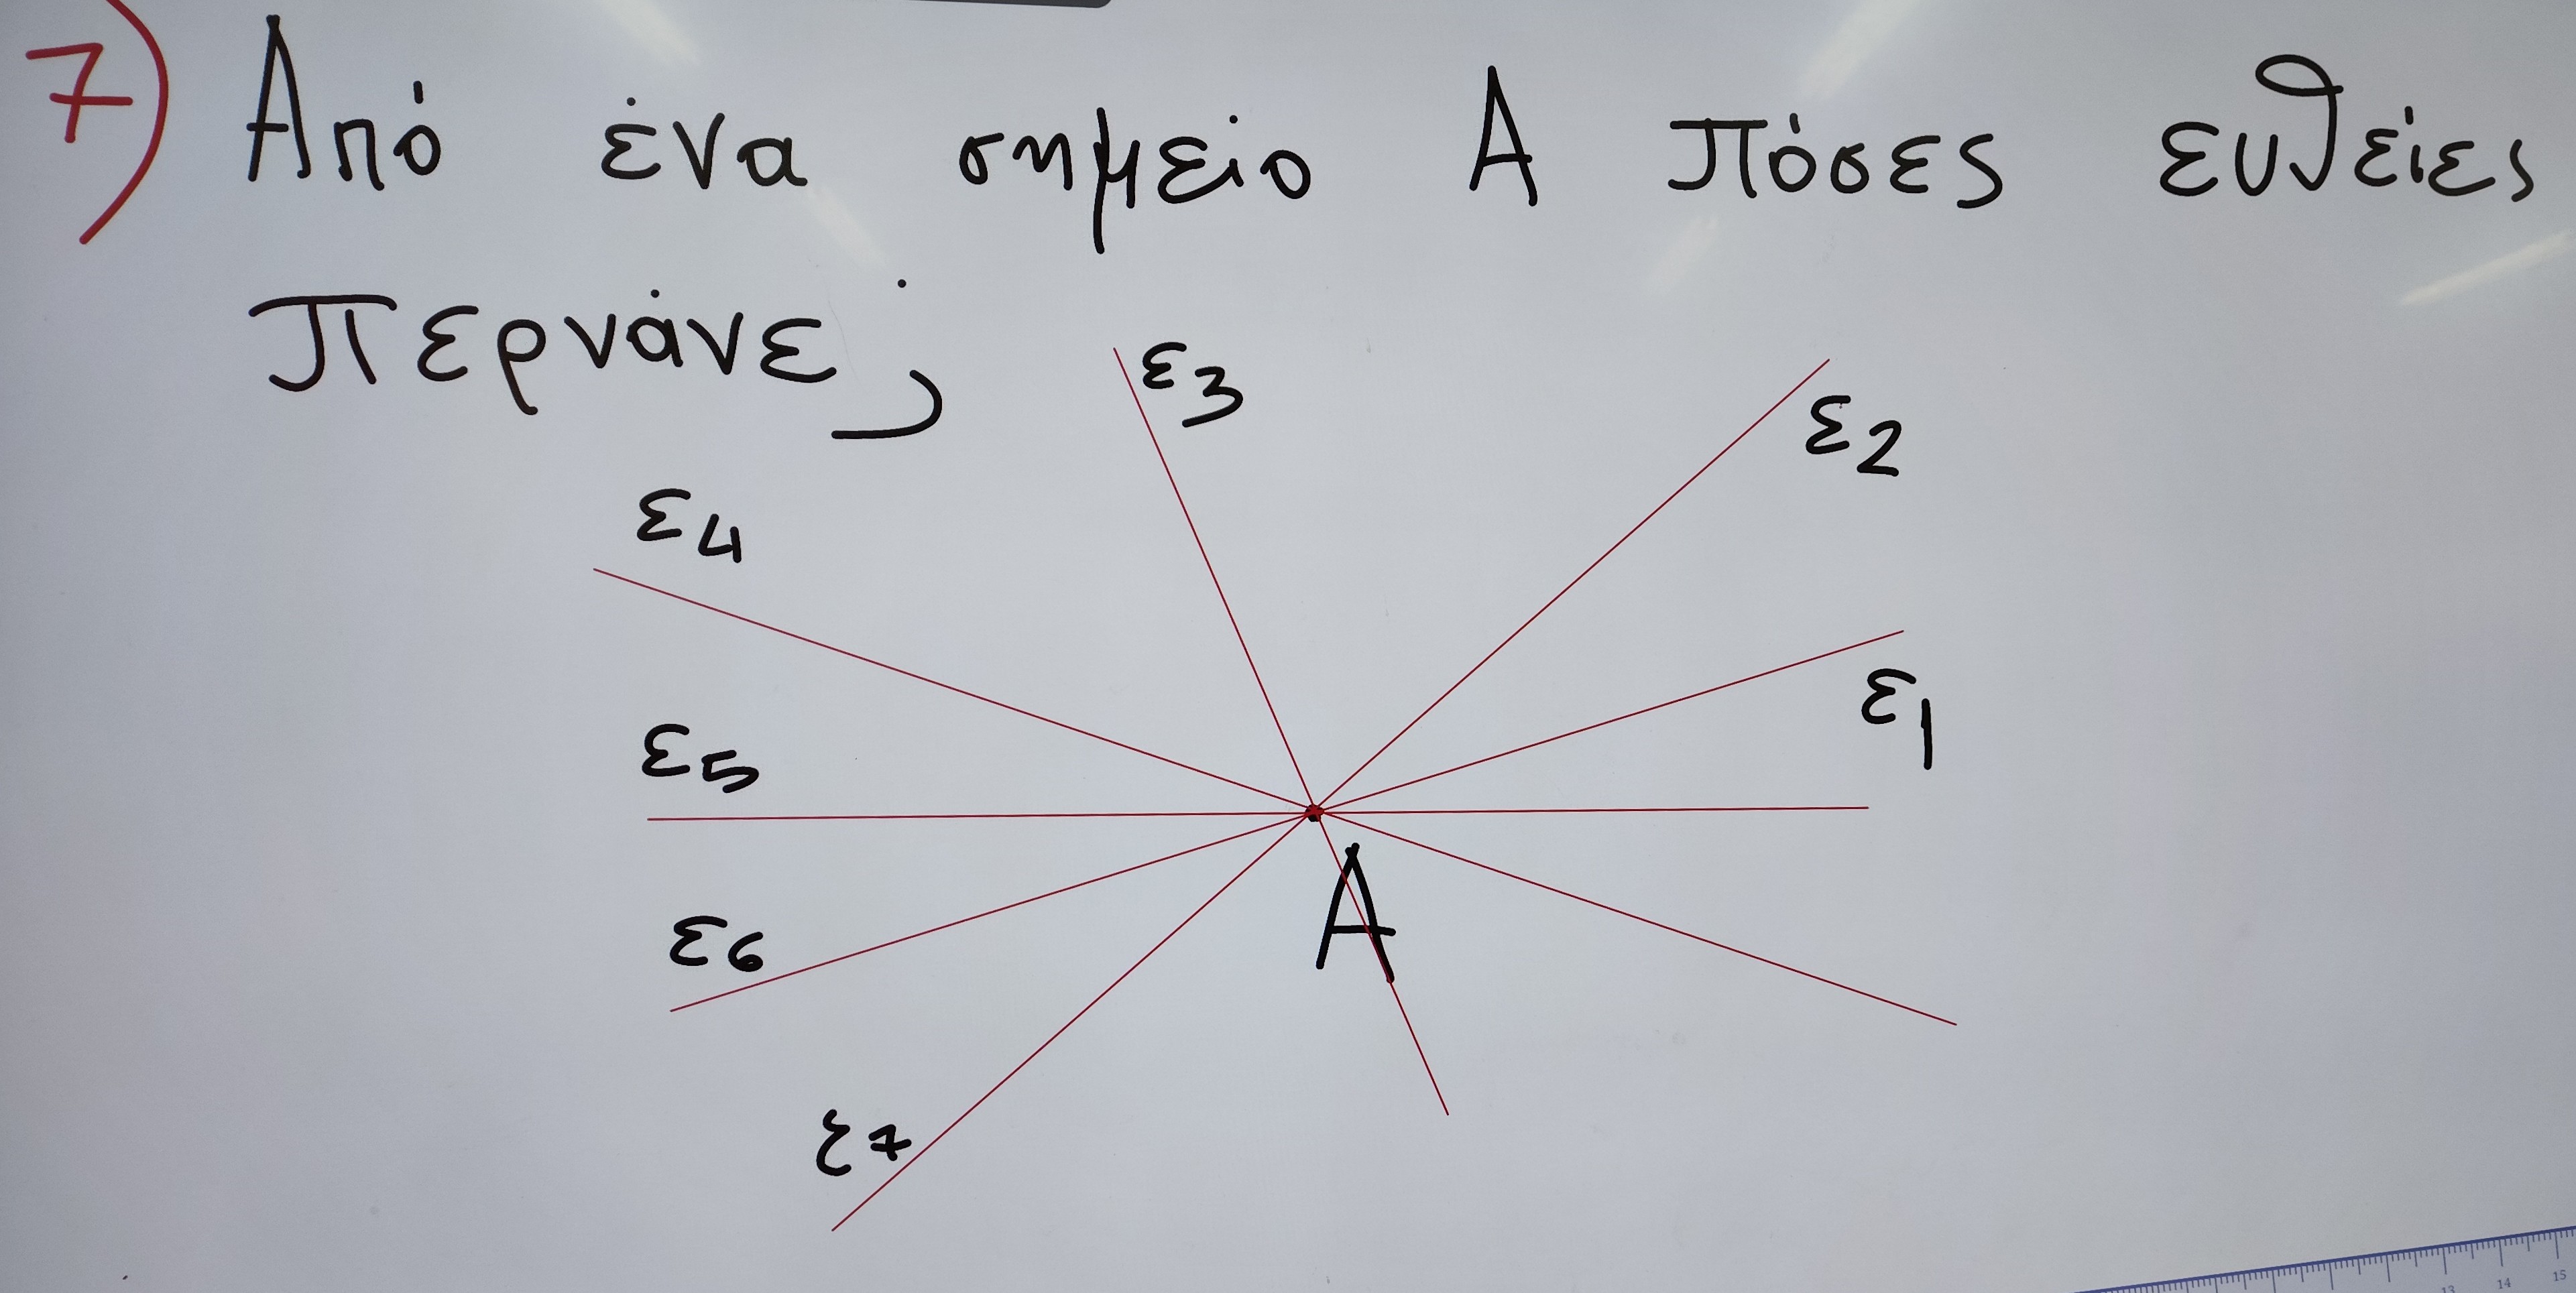 7) Από ένα σημείο Α πόσες ευθείες
περνάνε;
ε3
ε2
ε4
ε1
ε5
Α
ε6
ε7
13 14 15